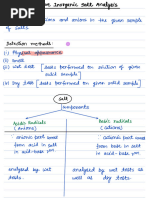 Inorganic Salt Analysis
cations and anions in the given sample
of salts.
Detection methods :
(i) Physical appearance
(ii) Smell
(iii) Wet test [tests performed on solution of given
solid sample]
(iv) Dry test [tests performed on given solid sample]
Salt
components
Acidic Radicals
(anions)
Basic Radicals
(cations)
anionic part comes
from acid in salt
in acid-base
cationic part comes
from base in salt
in acid-base
analysed by wet
tests.
analysed by wet tests as
well as dry tests.